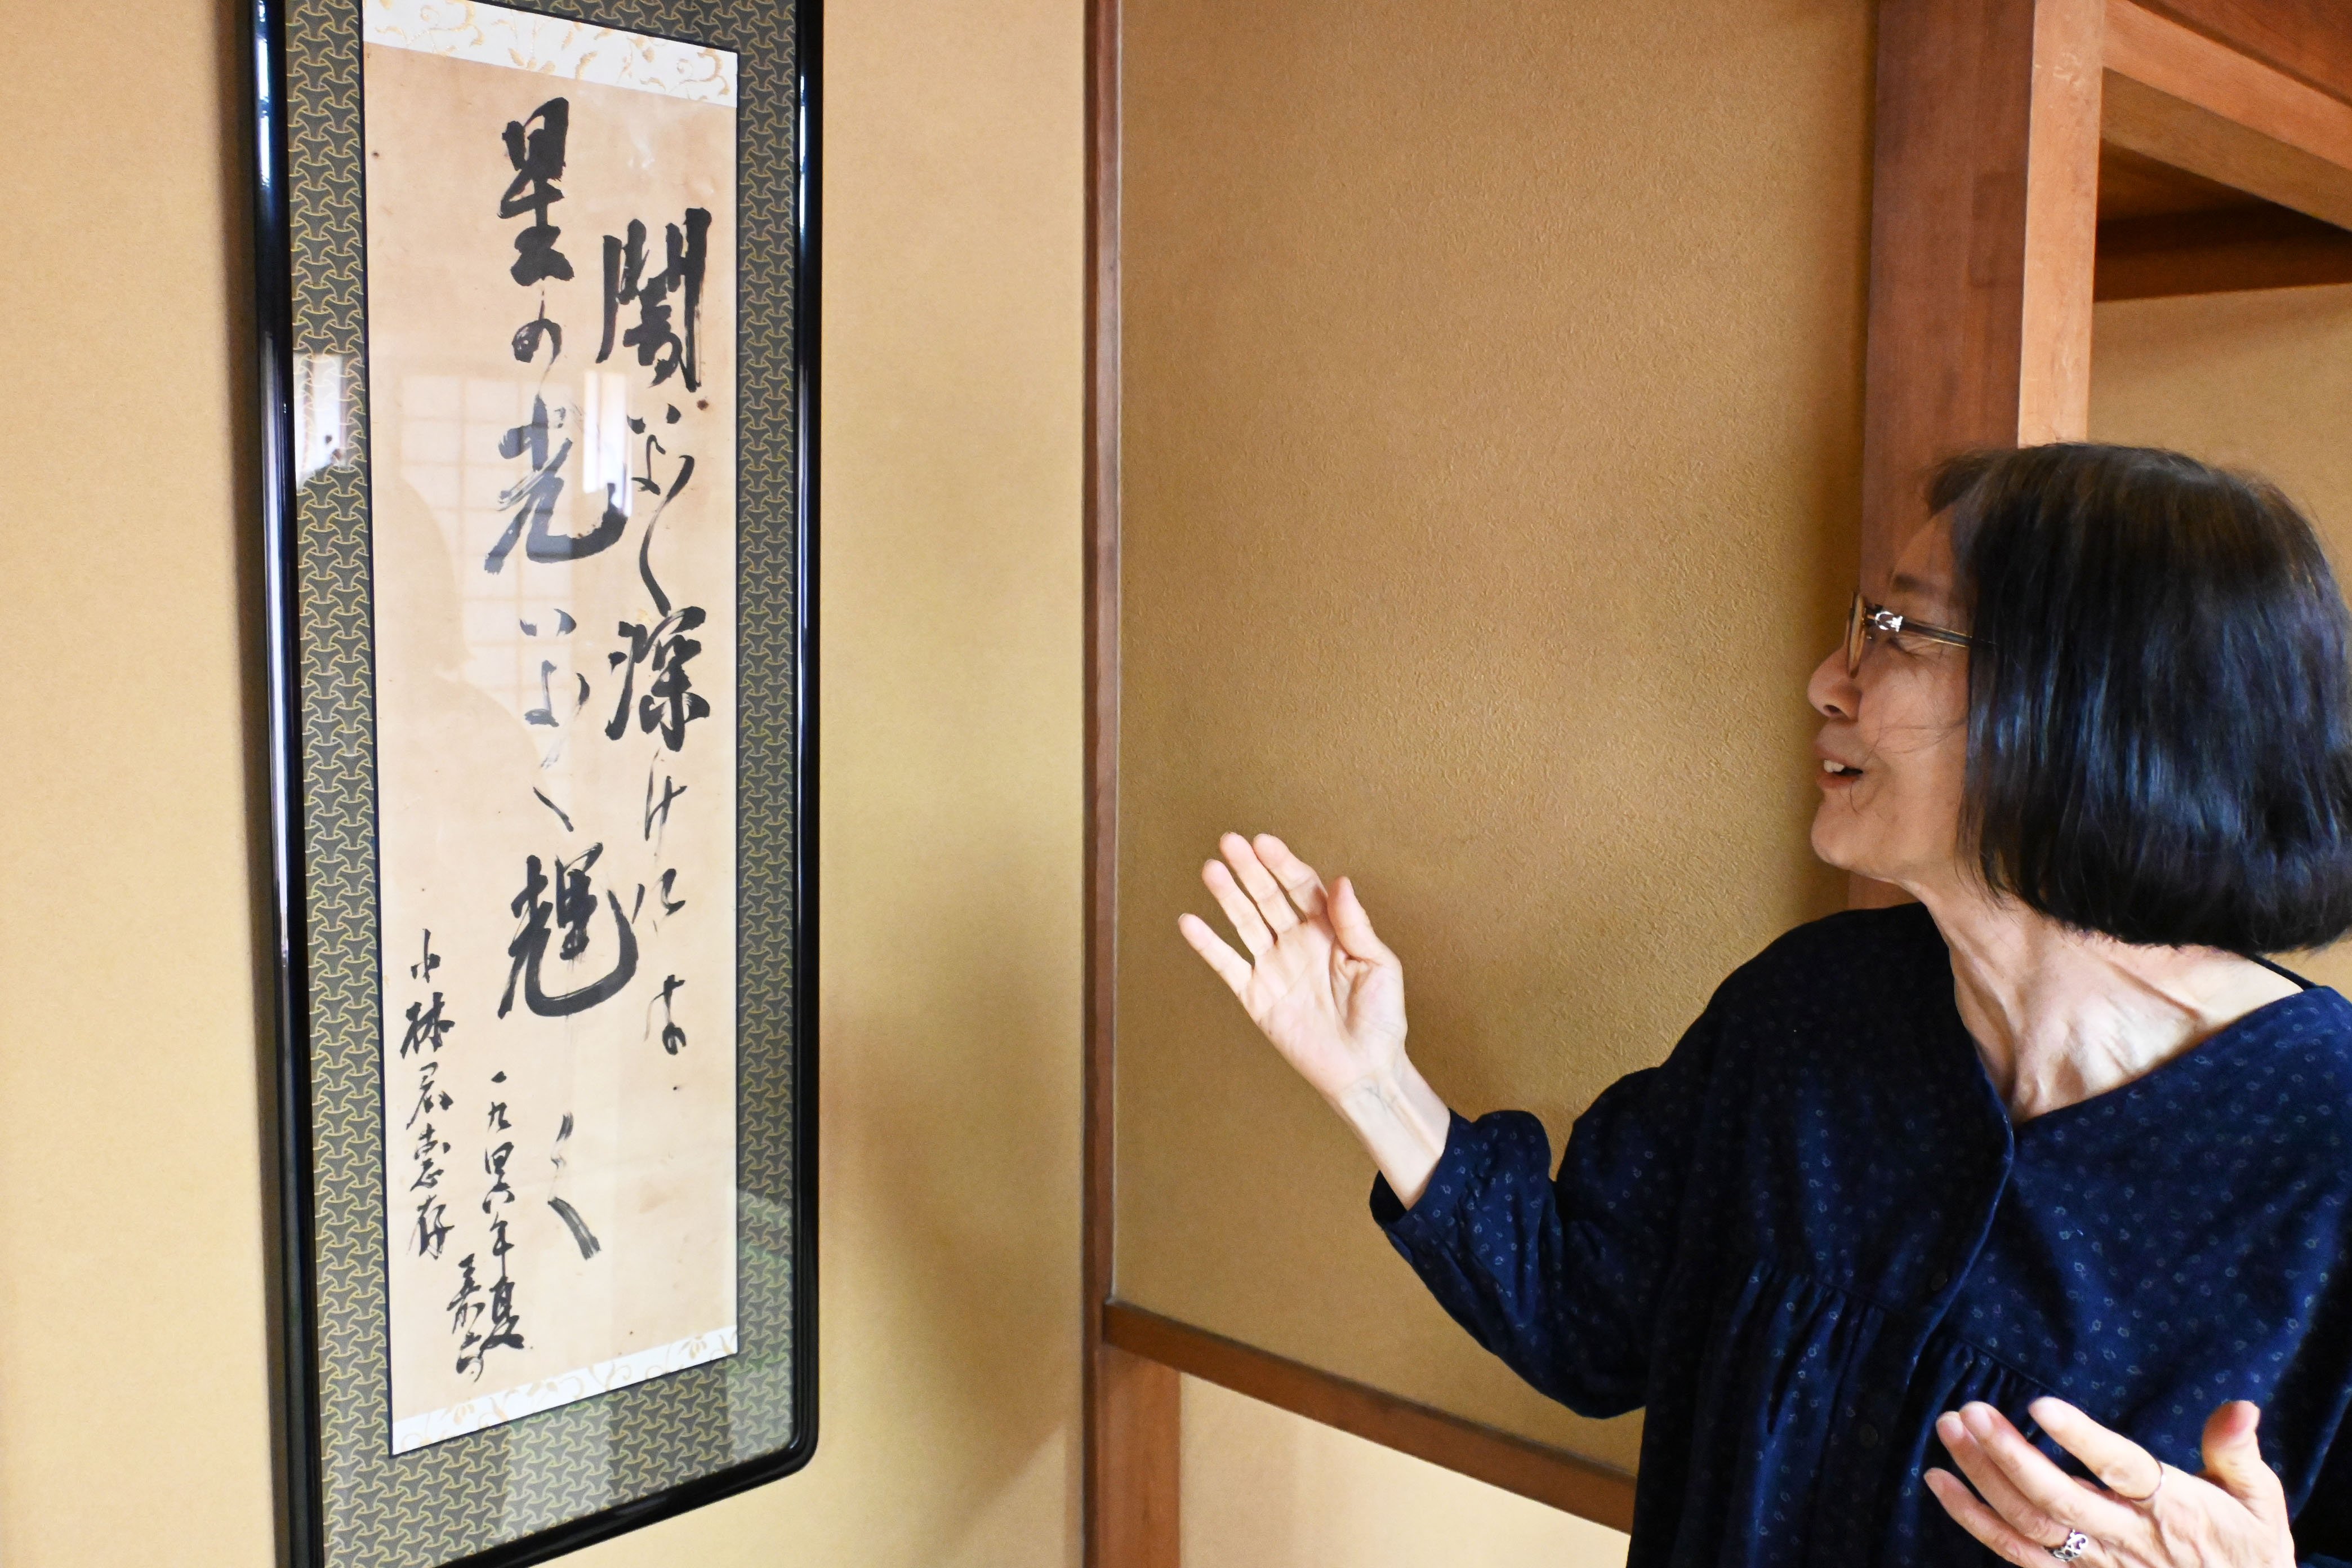 闇いよ〱深けれは
星の光いよ〱輝く
一九四六年夏
嘉六
小林君恵存